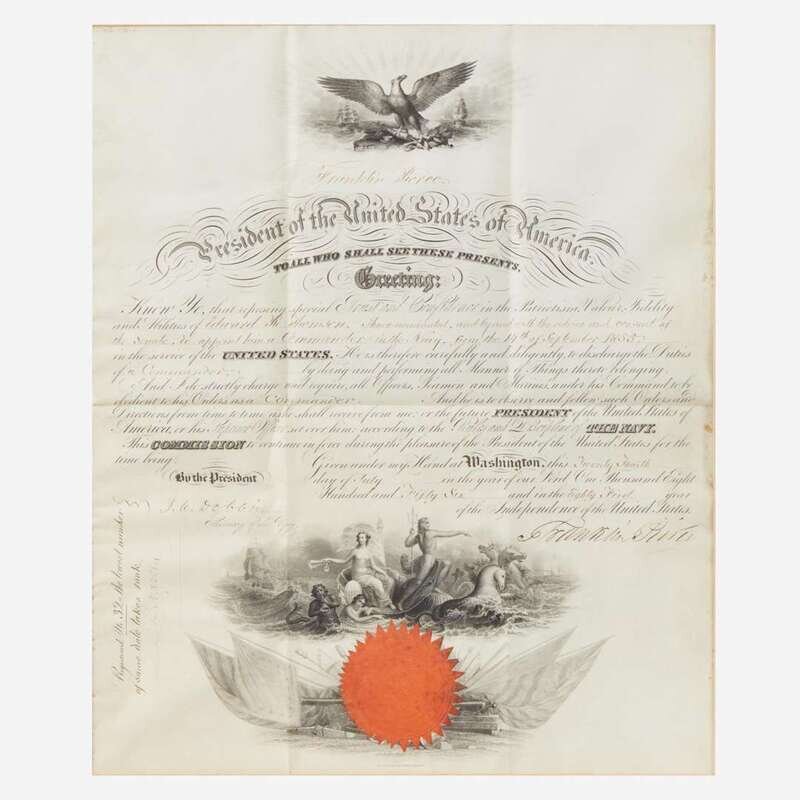 Franklin Pierce
President of the United States of America.
TO ALL WHO SHALL SEE THESE PRESENTS,
Greeting:
Know Ye, that reposing special Trust and Confidence in the Patriotism, Valour, Fidelity
and Abilities of Edward R. I have nominated, and by and with the advice and consent of
the Senate, do appoint him a Commander in the Navy, from the 14th of September 1855
in the service of the UNITED STATES. He is therefore carefully and diligently, to discharge the Duties
of a Commander by doing and performing all Manner of Things thereto belonging.
And I do strictly charge and require, all Officers, Seamen and Marines, under his Command to be
obedient to his Orders as a Commander And he is to observe and follow such Orders and
Directions from time to time as he shall receive from me, or the future PRESIDENT of the United States of
America, or his Superior Officer set over him, according to the Rules and Discipline of THE NAVY.
This COMMISSION to continue in force during the pleasure of the President of the United States for the
time being.
Given under my Hand at Washington, this Twenty Fourth
By the President
day of July in the year of our Lord One Thousand Eight
Hundred and Fifty Six and in the Eighty First year
of the Independence of the United States.
J. C. Dobbin
Secretary of the Navy
Franklin Pierce
Registered No. 32 the lowest number
of same date takes rank.